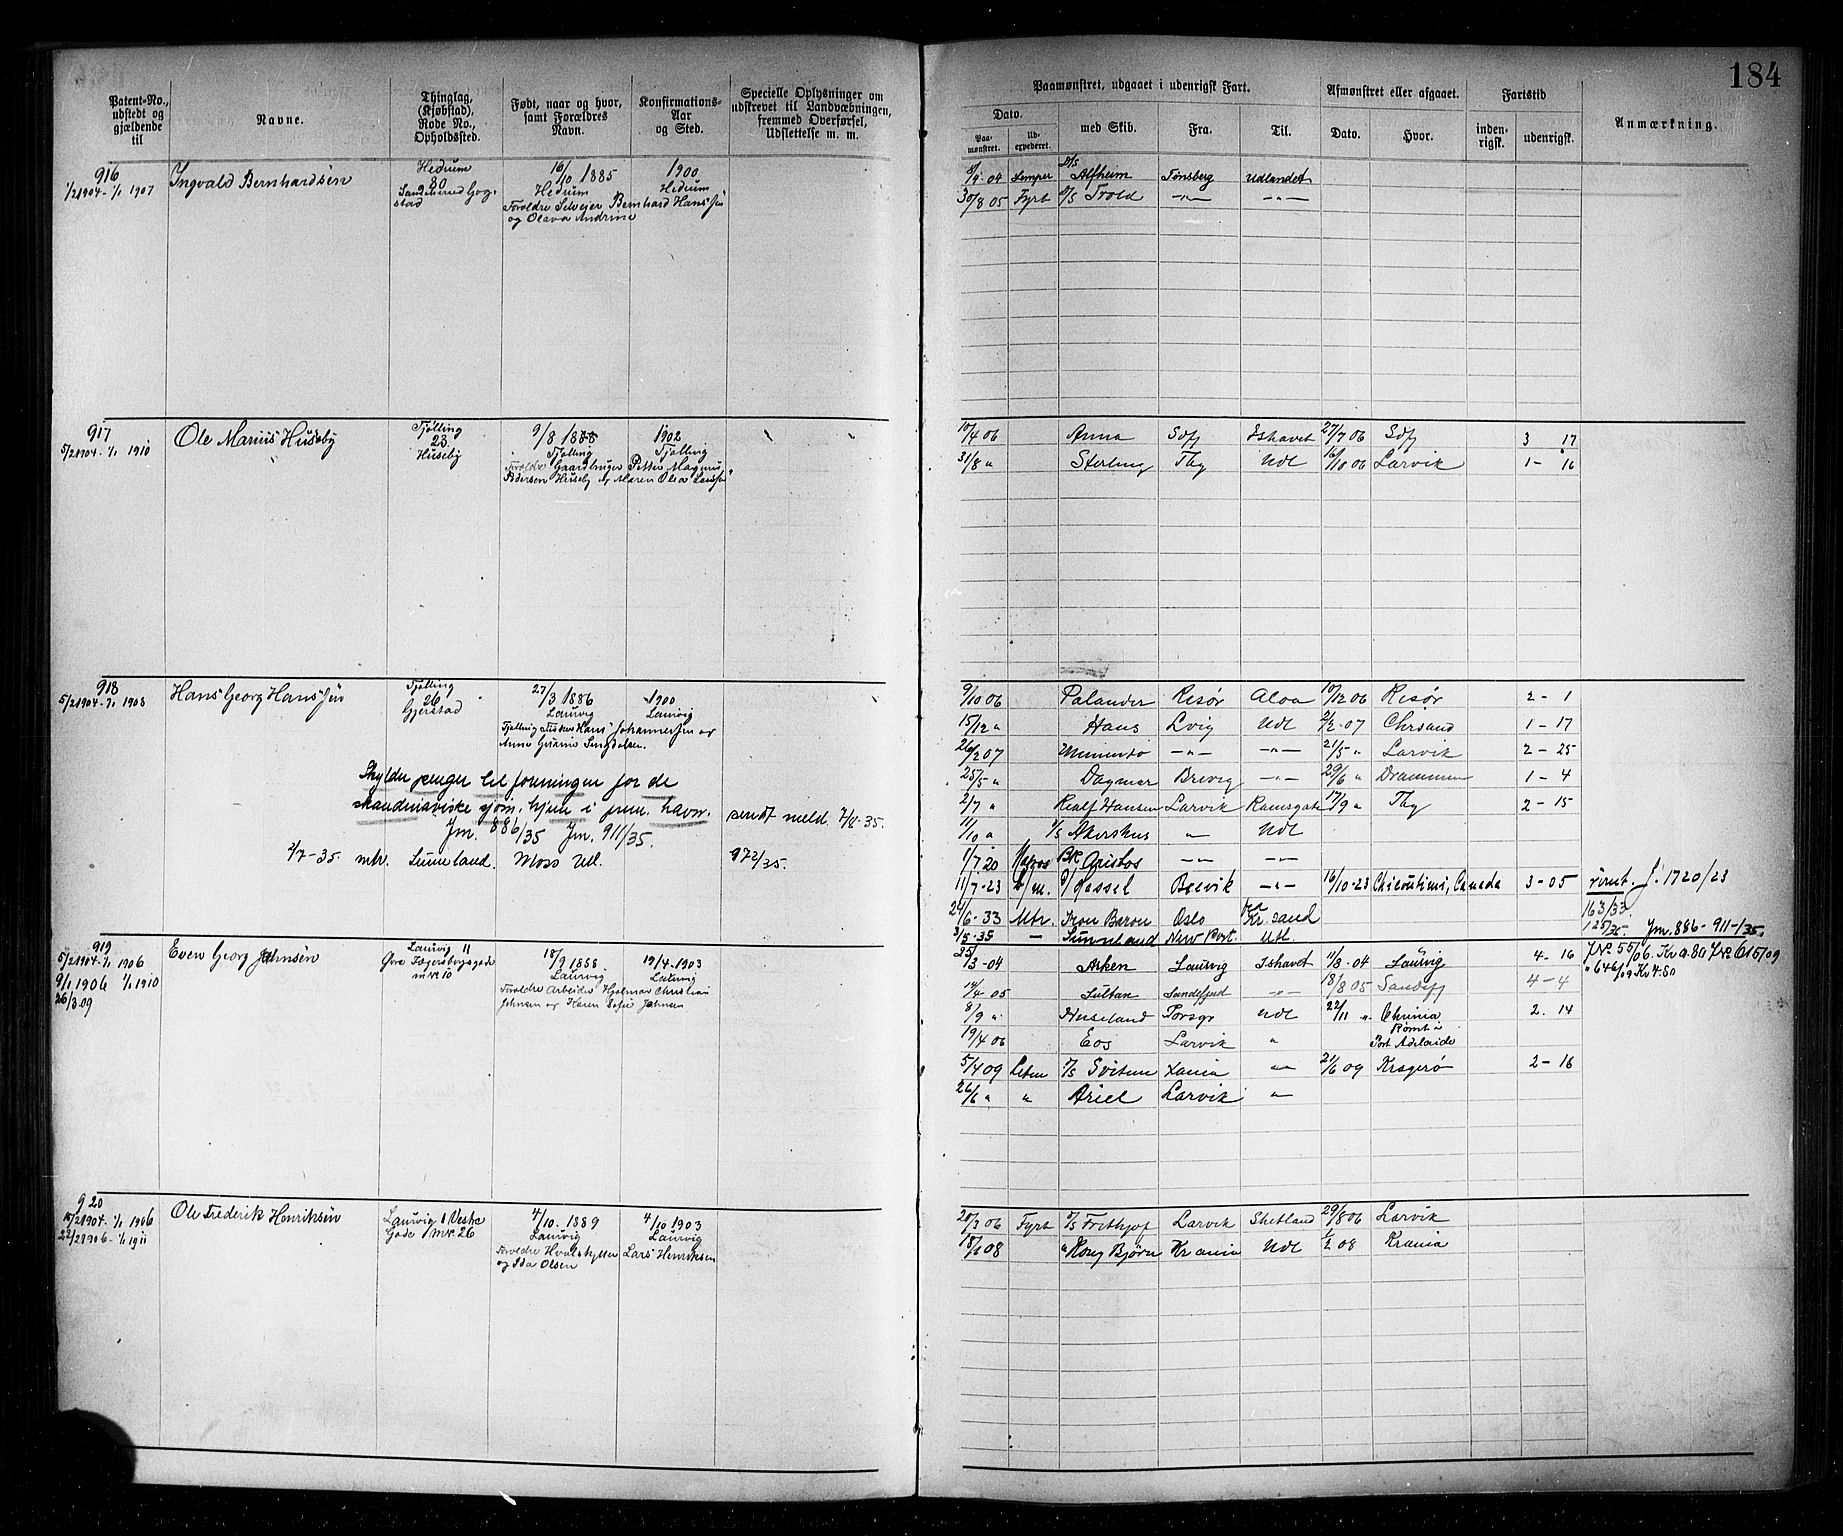 184
Patent-No., udstedt og gjældende til
Navne.
Thinglag, (Kjøbstad), Rode No., Opholdssted.
Født, naar og hvor, samt Forældres Navn.
Konfirmations-Aar og Sted.
Specielle Oplysninger om udskrevet til Landvæbningen, fremmed Overførsel, Udslettelse m. m.
Paamønstret, udgaaet i udenrigsk Fart.
Dato.
Paa-mønstret.
Ud-expederet.
med Skib.
Fra.
Til.
Afmønstret eller afgaaet.
Dato.
Hvor.
Fartstid
inden-rigsk.
udenrigsk.
Anmærkning.
916
1/2 1904 - 1/1 1907
Ingvald Bernhardsen
Hedrum
80
Hedrum
1900
Hedrum
Forældre Selveier Bernhard Hanssen
og Olava Andrine
5/9 04 Lemper D/S Alfheim Tønsberg Udlandet
30/8 05 Fyrb D/S Trold -"- -"-
917
5/2 1904 - 1/1 1910
Ole Marius Huseby
Tjølling
23
Huseby
9/8 1888
Tjølling
1902
Tjølling
Forældre Gaardbruger Petter Magnus
Pedersen Huseby og Maren Olea
10/4 06 Anna Sdfj Ishavet 27/7 06 Sdfj 3 17
31/8 " Sterling Tbg Udl 16/10 06 Larvik 1 - 16
918
5/2 1904 - 1/1 1908
Hans Georg Hanssen
Tjølling
26
Gjerstad
27/3 1886
Laurvig
1900
Laurvig
Tjølling Fisker Hans Johannessen og
Skylder penger til foreningen for de
skandinaviske sjøm. hjem i frem. havn. sendt meld. 7/8-35.
Jm. 886/35 Jm. 911/35.
2/7-35. mtr. Sunneland. Moss Utl. 972/35.
9/10 06 Palander Risør Aloa 10/12 06 Risør 2 - 1
15/12 " Hans Lvig Udl 2/2-07 Chrsand 1 - 17
26/2 07 -"- -"- 21/5 " Larvik 2 - 25
25/5 " Dagmar Brevig -"- 29/6 " Drammen 1 - 4
2/7 " Realf Hansen Larvik Ramsgate 17/9 " Tbg 2 - 15
11/10 " D/S Akershus " Udl
1/7 20 Matros Bk Aristos -"- -"-
11/7-23 Hassel Brevik -"- 16/10-23 Chicoutimi, Canada 3 - 05 rømt. J. 1720/23
24/6-33 Mtr. Iron Baron Oslo fra Kr.sand 163/33.
3/5-35 - Sunneland New Port. Utl. 125/35. Jm. 886 - 911-/35.
919
5/2 1904 - 1/1 1906
9/1 1906 1/1 1910
26/3 09
Even Georg Johnsen
Laurvig 11
Øvre Fagersborggade
mk 10
18/9 1888
Laurvig
19/4-1903
Laurvig
Forældre Arbeider Hjalmar Christian
Johnsen og Karen Sofie Johnsen
23/3-04 Arken Laurvig Ishavet 11/8-04 Laurvig 4 - 16
14/4-05 Sultan Sandefjord -"- 18/8 05 Sandefj 4 - 4
8/9 " Huseland Porsgr Udl 22/11 " Chrinia 2. 14
19/4 06 Eos Larvik " Rømt i
Port Adelaide
5/4 09 Letm D/S Svithun Xania -"- 21/6 09 Kragerø 2 - 16
26/6 " " Ariel Larvik -"-
920
1/1 1906
22/2 1906 - 1/1 1911
Ole Frederik Henriksen
Laurvig 1 Vestre
Gade mk. 26
4/10. 1889
Laurvig
4/10 1903
Laurvig
Lars Henriksen
og Ida Olsen
20/3 06 Fyrb D/S Frithjof Larvik Shetland 29/8 06 Larvik
18/1 08 " Kong Bjørn Krania Udl 1/2 08 Krania